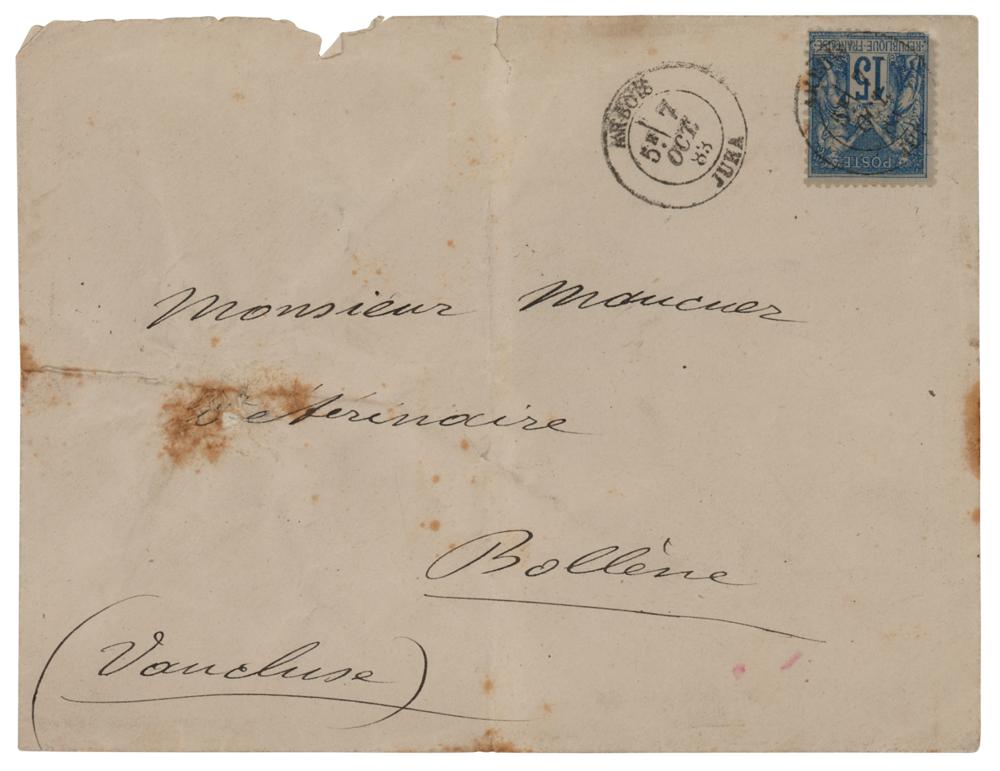 ARBOIS
5E 7
OCT.
83
JURA
POSTE
15
REPUBLIQUE-FRANÇAISE
Monsieur Maucuer
Vétérinaire
Bollène
(Vaucluse)